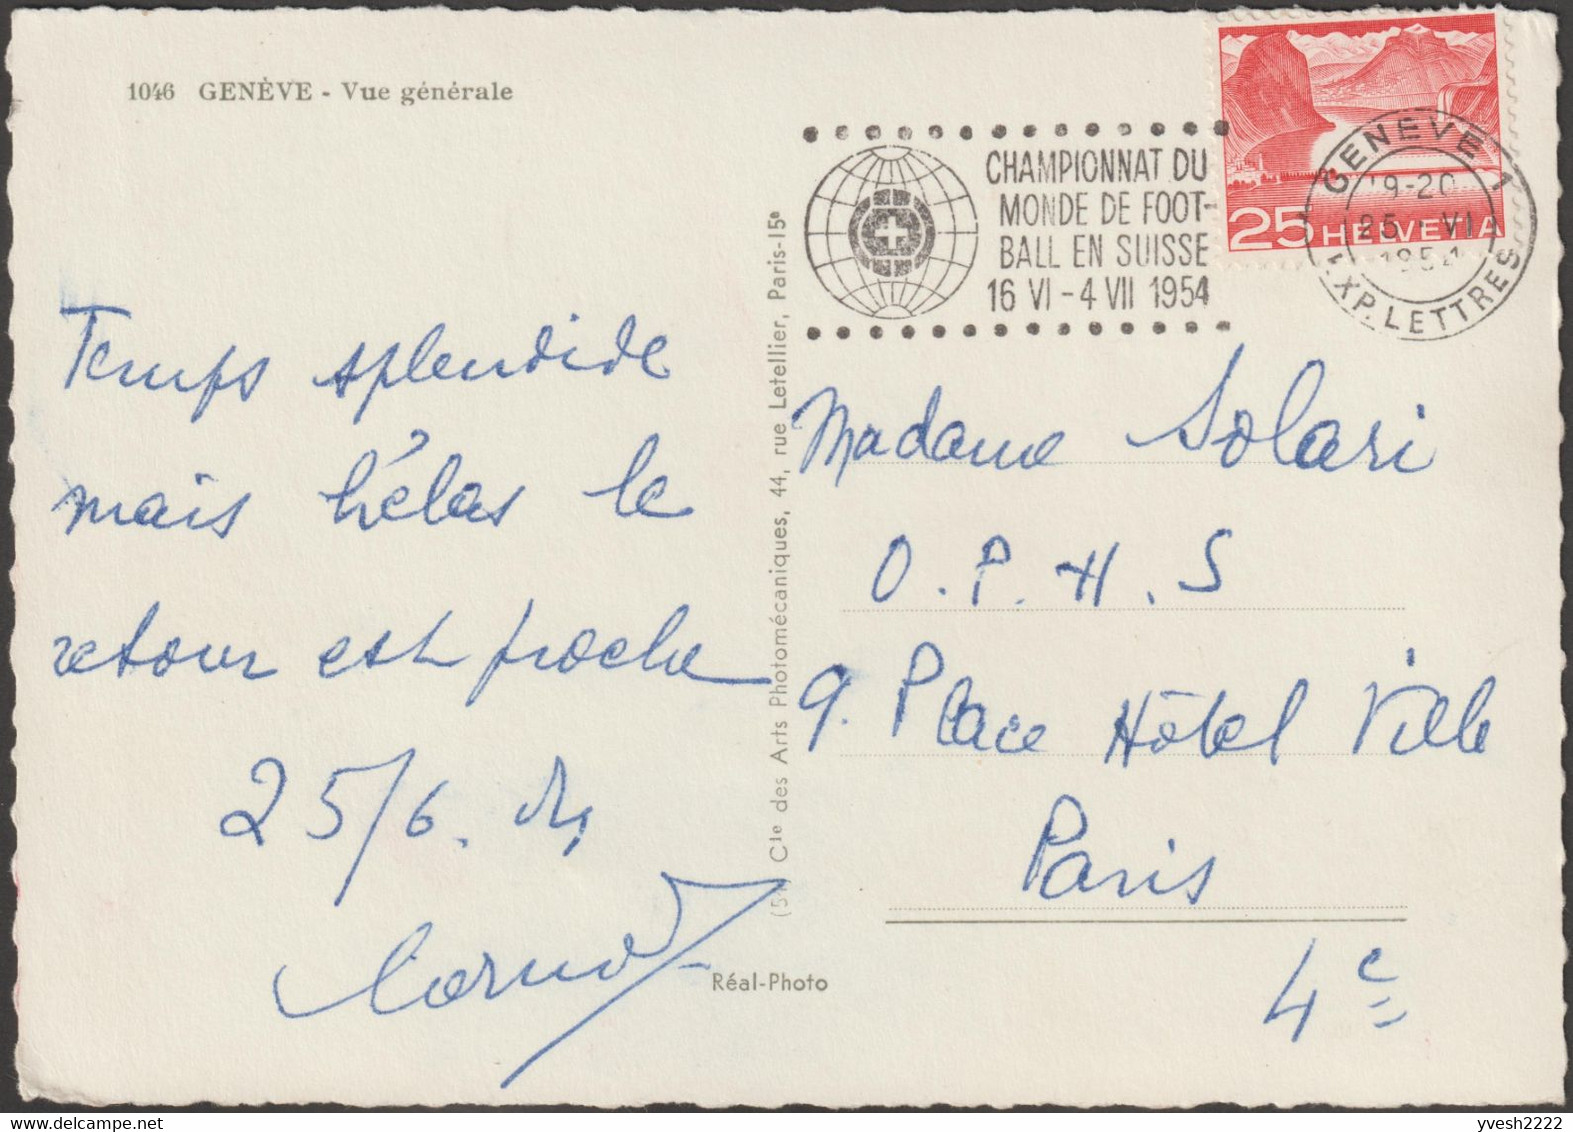 1046 GENÈVE - Vue générale
CHAMPIONNAT DU
MONDE DE FOOT-
BALL EN SUISSE
16 VI - 4 VII 1954
GENEVE 1
19-20
25 · VI
1954
EXP. LETTRES
25 HELVETIA
Temps splendide
mais hélas le
retour est proche
25/6. 54
Cie des Arts Photomécaniques, 44, rue Letellier, Paris-15e
Réal-Photo
Madame Solari
O.P.H.S
9. Place Hôtel Ville
Paris
4e
yvesh2222